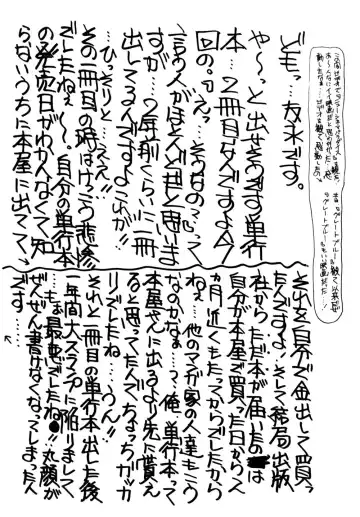 どもっ…友永です。
や〜っと出せそうです単行
本…2冊目なんですよ今
回の。えっ…そうなの…って
言う人がほとんどだと思いま
すが…2年前くらいに一冊
出してるんですよこれが!!
…ひっそりと…ええ!!
その一冊目の時はけっこう悲惨
でしたねぇ〜自分の単行本
の発売日がわかんなくて知
らないうちに本屋に出てて…
それを自分で金出して買っ
たんですよ…そして結局出版
社からただ本が届いたのは
自分が本屋で買った日から一
カ月近くもたってからでしたから
ねぇ…他のマンガ家の人達もこう
なのかなぁ…って、俺、単行本って
本屋さんに出るより先に貰え
ると思ってたんでぐちっちガッカ
リでしたね…うん!!
それと一冊目の単行本出した後
一年間大スランプに陥りまして
…もぉ最悪でしたね!!丸顔が
ぜんぜん書けなくなってしまったん
です……